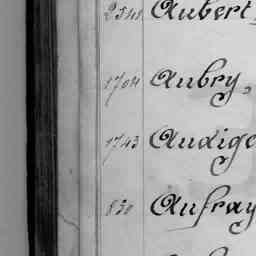 2541 Aubert,
1704 Aubry,
1743 Audige
830 Aufray